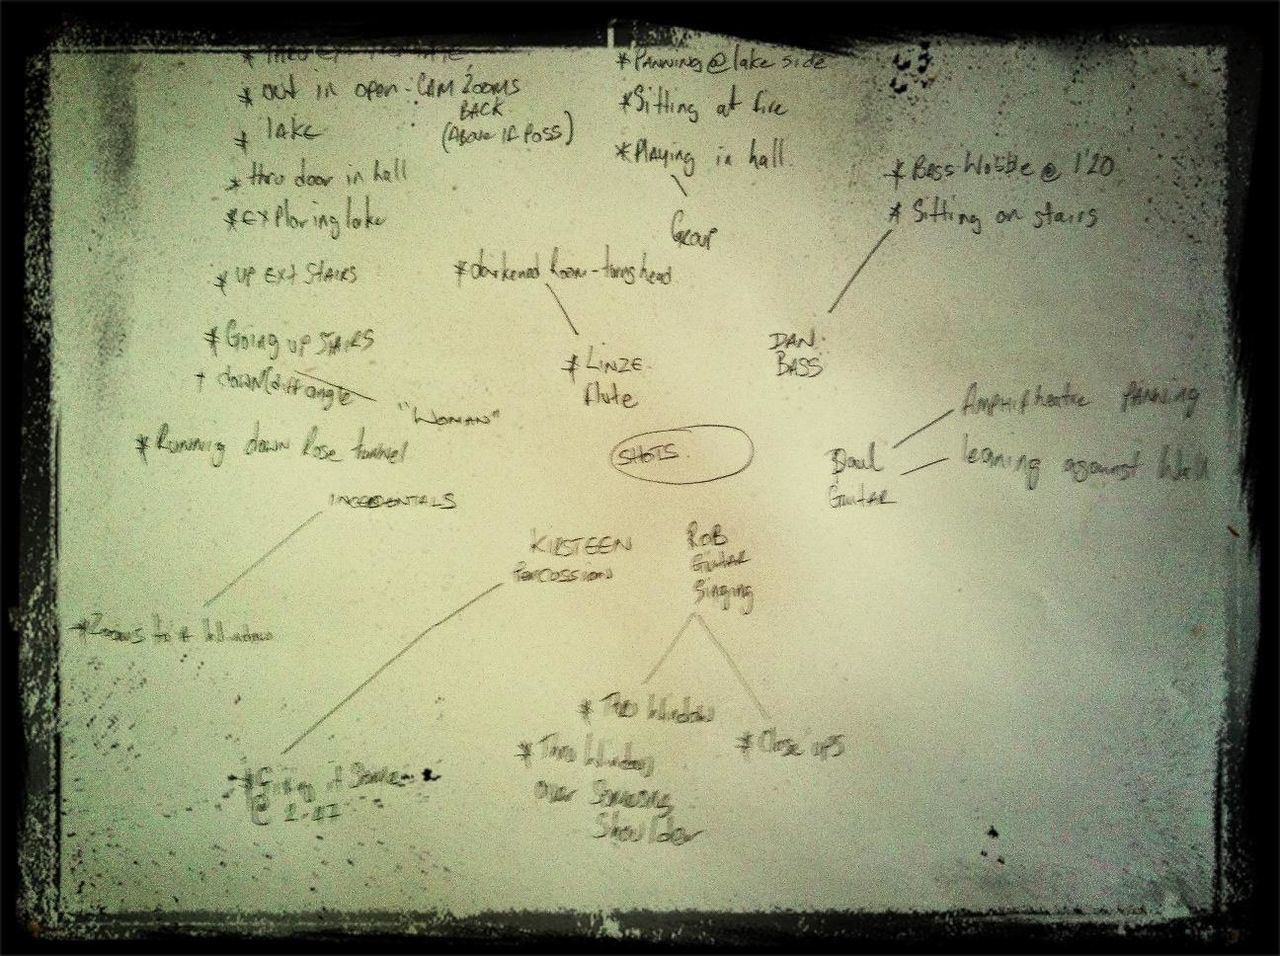 * out in open - CAM ZOOMS
BACK
(Above IF POSS)
* lake
* thru door in hall
* EXPloring lake
* UP EXT STAIRS
* Going up STAIRS
+ down (diff angle
"WOMAN"
* Running down Rose tunnel
INCEDENTALS
* Zooms to a Window
* PANNING @ lake side
* Sitting at fire
* PLAYING in hall
GROUP
* darkened Room - turns head
* LINZE
flute
SHOTS
* Bass Wobble @ 1'20
* Sitting on stairs
DAN
BASS
AMPHITheatre PANNING
leaning against Wall
Paul
GuitAR
KIRSTEEN
PERCUSSION
* Giving it Some
@ 2.27
ROB
GuitAR
Singing
* Thru Window
* Thru Window
over Someones
Shoulder
* Close ups